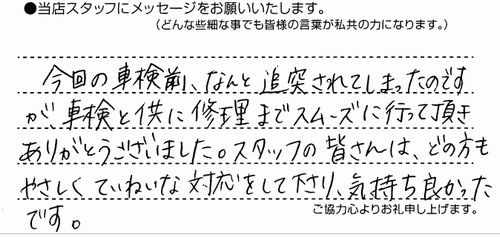 ●当店スタッフにメッセージをお願いいたします。
（どんな些細な事でも皆様の言葉が私共の力になります。）
今回の車検前、なんと追突されてしまったのです
が、車検と供に修理までスムーズに行って頂き
ありがとうございました。スタッフの皆さんは、どの方も
やさしくていねいな対応をして下さり、気持ち良かった
です。
ご協力心よりお礼申し上げます。